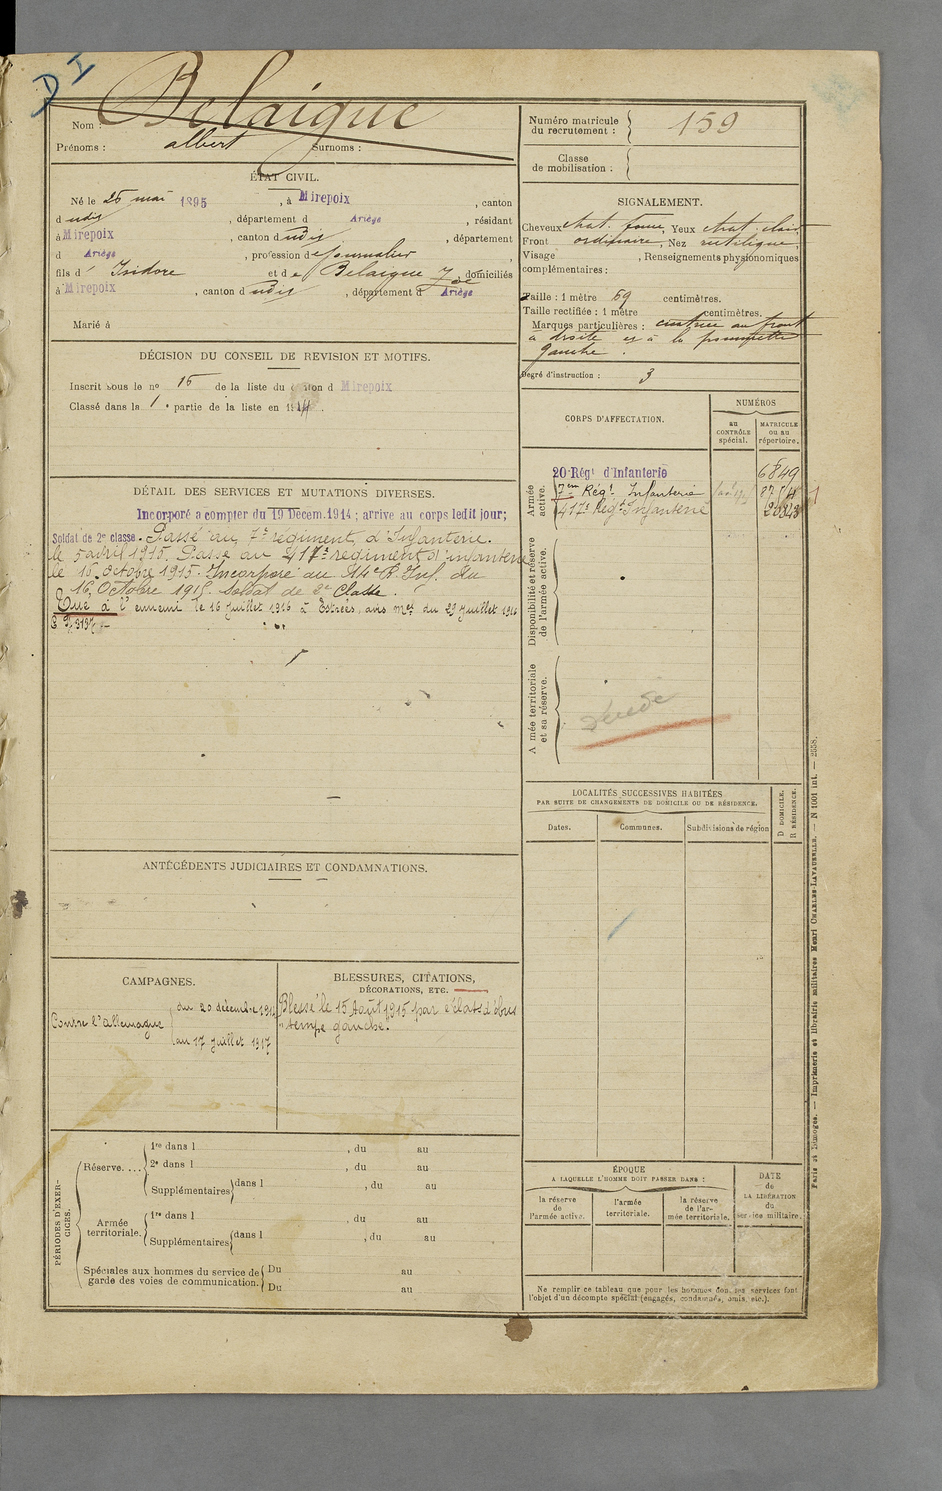 D I
Nom : Belaigue
Prénoms : albert Surnoms :
ÉTAT CIVIL.
Né le 25 mai 1895, à Mirepoix, canton
d udis, département d Ariège, résidant
à Mirepoix, canton d udis, département
d Ariège, profession de journalier,
fils d' Isidore et de Belaigue Zoé, domiciliés
à Mirepoix, canton d udis, département d Ariège
Marié à
DÉCISION DU CONSEIL DE REVISION ET MOTIFS.
Inscrit sous le no 15 de la liste du canton d Mirepoix
Classé dans la 1e partie de la liste en 1914.
DÉTAIL DES SERVICES ET MUTATIONS DIVERSES.
Incorporé a compter du 19 Décem. 1914 ; arrive au corps ledit jour;
Soldat de 2e classe. Passé au 7e régiment d'Infanterie.
le 5 avril 1915. Passé au 417e régiment d'infanterie
le 15 octobre 1915. Incorporé au R. Inf. du
16 Octobre 1915 Soldat de 2e Classe.
Tué à l'ennemi le 16 juillet 1916 à Estrées, avis mel du 29 juillet 1916
ANTÉCÉDENTS JUDICIAIRES ET CONDAMNATIONS.
CAMPAGNES.
Contre l'allemagne
du 20 décembre 1914
au 17 juillet 1917
BLESSURES, CITATIONS,
DÉCORATIONS, ETC.
Blessé le 15 Août 1915 par éclats d'obus
tempe gauche.
PÉRIODES D'EXERCICES.
Réserve....
1re dans l , du au
2e dans l , du au
Supplémentaires dans l , du au
Armée territoriale.
1re dans l , du au
Supplémentaires dans l , du au
Spéciales aux hommes du service de
garde des voies de communication.
Du au
Du au
Numéro matricule
du recrutement : 159
Classe
de mobilisation :
SIGNALEMENT.
Cheveux chat. foncé, Yeux chat. clair
Front ordinaire, Nez rectiligne,
Visage , Renseignements physionomiques
complémentaires :
Taille : 1 mètre 69 centimètres.
Taille rectifiée : 1 mètre centimètres.
Marques particulières : cicatrice au front
à droite et à la pommette
gauche.
Degré d'instruction : 3
CORPS D'AFFECTATION.
NUMÉROS
au
CONTRÔLE
spécial.
MATRICULE
ou au
répertoire.
Armée
active.
20 Régt d'Infanterie 6849
7em Régt. Infanterie
417e Régt Infanterie
Disponibilité et réserve
de l'armée active.
Armée territoriale
et sa réserve.
LOCALITÉS SUCCESSIVES HABITÉES
PAR SUITE DE CHANGEMENTS DE DOMICILE OU DE RÉSIDENCE.
Dates.
Communes.
Subdivisions de région
D DOMICILE.
R RÉSIDENCE.
ÉPOQUE
A LAQUELLE L'HOMME DOIT PASSER DANS :
la réserve
de
l'armée active.
l'armée
territoriale.
la réserve
de l'ar-
mée territoriale.
DATE
de
LA LIBÉRATION
du
service militaire.
Ne remplir ce tableau que pour les hommes dont les services font
l'objet d'un décompte spécial (engagés, condamnés, omis, etc.).
Paris et Limoges. — Imprimerie et librairie militaires Henri CHARLES-LAVAUZELLE. — N 1001 int. — 2558.